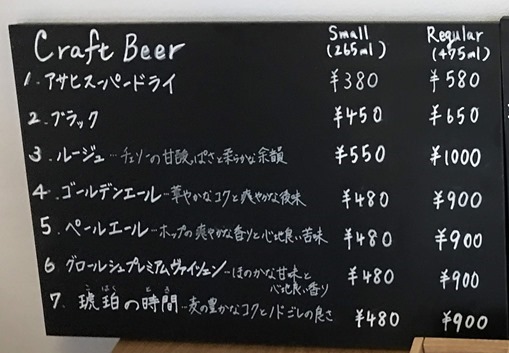 Craft Beer Small (265ml) Regular (475ml)
1. アサヒスーパードライ ¥380 ¥580
2. ブラック ¥450 ¥650
3. ルージュ…チェリーの甘酸っぱさと柔らかな余韻 ¥550 ¥1000
4. ゴールデンエール…華やかなコクと爽やかな後味 ¥480 ¥900
5. ペールエール…ホップの爽やかな香りと心地良い苦味 ¥480 ¥900
6 グロールシュプレミアムヴァイツェン…ほのかな甘味と心地良い香り ¥480 ¥900
7. 琥珀の時間…麦の豊かなコクとノドごしの良さ ¥480 ¥900
こはく とき